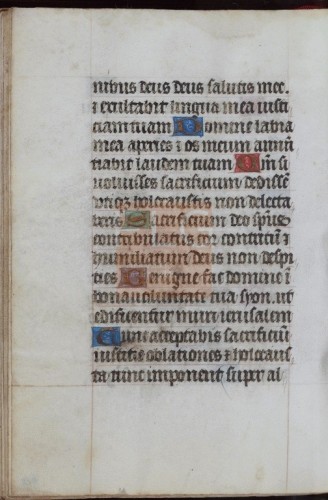 nibus deus deus salutis mee.
⁊ exultabit lingua mea iusti
ciam tuam Domine labia
mea aperies ⁊ os meum annū
tiabit laudem tuam Qm̄ si
uoluisses sacrificium dedissē
utiqꝫ holocaustis non delecta
beris Sacrificium deo spūs
contribulatus cor contritū ⁊
humiliatum deus non despi
cies Benigne fac domine ī
bona uoluntate tua syon. ut
edificentur muri ierusalem
Tunc acceptabis sacrificiū
iusticie oblationes ⁊ holocaus
ta tunc imponent super al